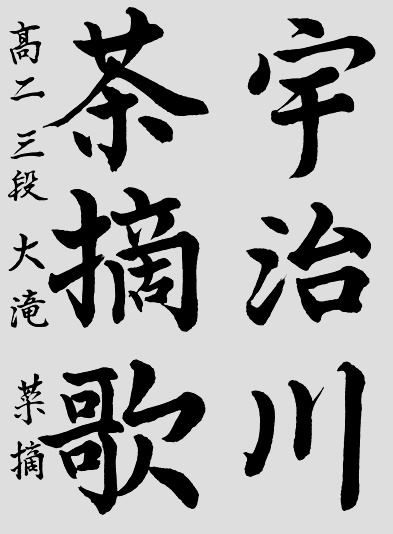 宇治川
茶摘歌
高二 三段 大滝 菜摘